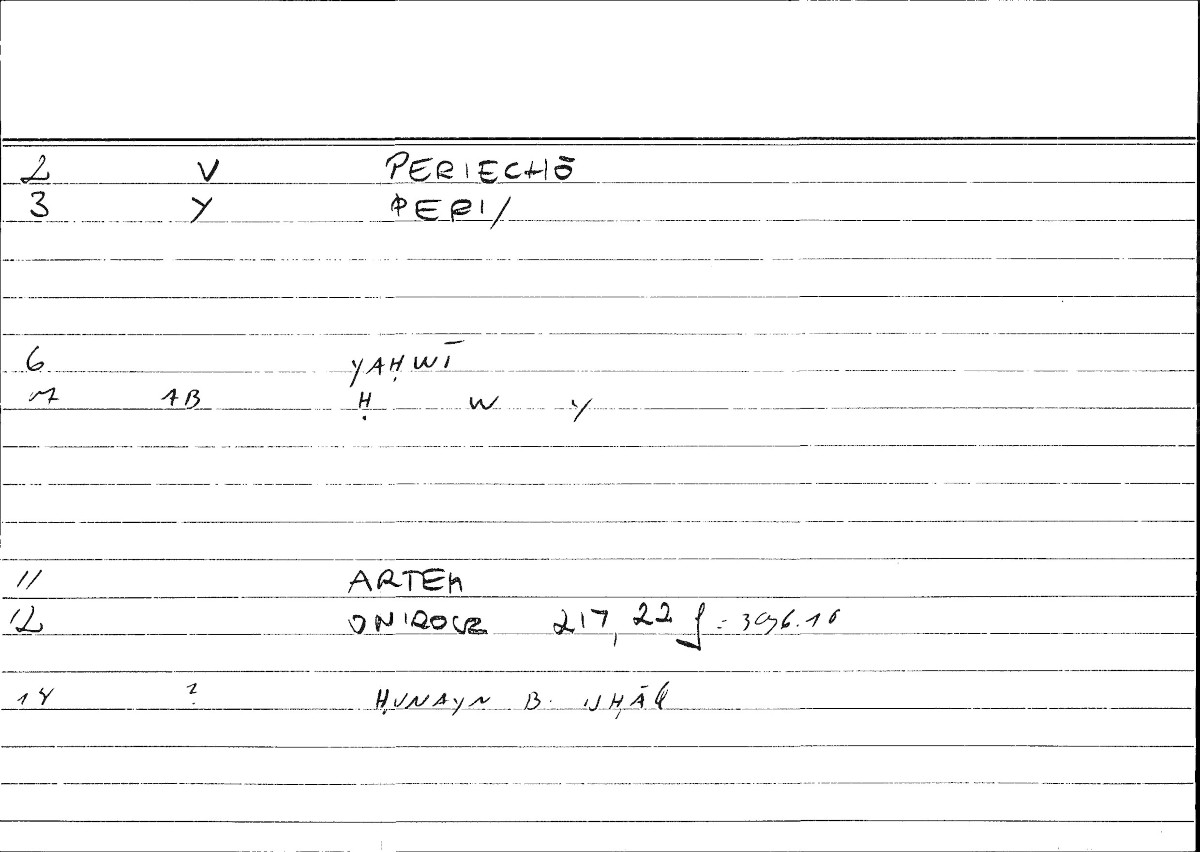 2 V PERIECHŌ
3 Y PERI/
6 YAḤWĪ
7 1B Ḥ W Y
11 ARTEM
12 ONIROCR 217, 22 f = 396.16
14 ? ḤUNAYN B. ISḤĀQ